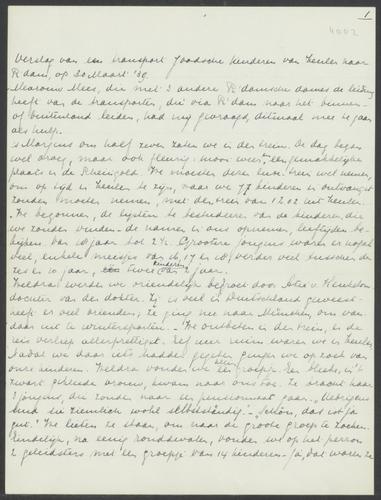 1
4002
Verslag van een transport Joodsche kinderen van Zeulen naar
R'dam, op 30 Maart '39.
Mevrouw Mees, die met 3 andere R'damsche dames de leiding
heeft van de transporten, die via R'dam naar het binnen-
of buitenland leiden, had mij gevraagd, ditmaal mee te gaan
als hulp.
's Morgens om half zeven zaten we in den trein. De dag begon
wel droog, maar ook fleurig: mooi weer, een gemakkelijke
plaats in de Rheingold. We moesten deze luxe trein wel nemen,
om op tijd in te zijn, waar we 77 kinderen in ontvangst
zouden moeten nemen, met den trein van 12.02 uit
We begonnen, de lijsten te bestudeeren van de kinderen die
we zouden vinden - de namen in ons opnemen, leeftijden be-
kijken. Van 10 jaar tot 2½. Grootere jongens waren er nogal
veel, enkele meisjes van 16, 17 en 18, verder veel tusschen de
zes en 10 jaar, twee kinderen van 2 jaar.
werden we vriendelijk begroet door v.
dochter van den dokter. Zij is veel in Duitschland geweest
heeft er veel vrienden; ze ging nu naar München om van
daar uit te wintersporten. - We ontbeten in den trein, en de
reis verliep allerprettigst. Half een waren we in
Nadat we daar iets hadden gegeten, gingen we op zoek van
onze kinderen. Weldra vonden we een groepje. Een slecht, in 't
zwart gekleede vrouw, kwam naar ons toe. Ze bracht haar
3 jongens, die zouden naar een pensionnaat gaan. "Uebrigens
sind sie ziemlich wohl selbstständig." - "Schön, das ist ja
gut." We lieten ze staan, om naar de groote groep te zoeken.
Eindelijk, na eenig rondzwalken, vonden we op het perron
2 geleidsters met een groepje van 14 kinderen - ja, dat waren ze